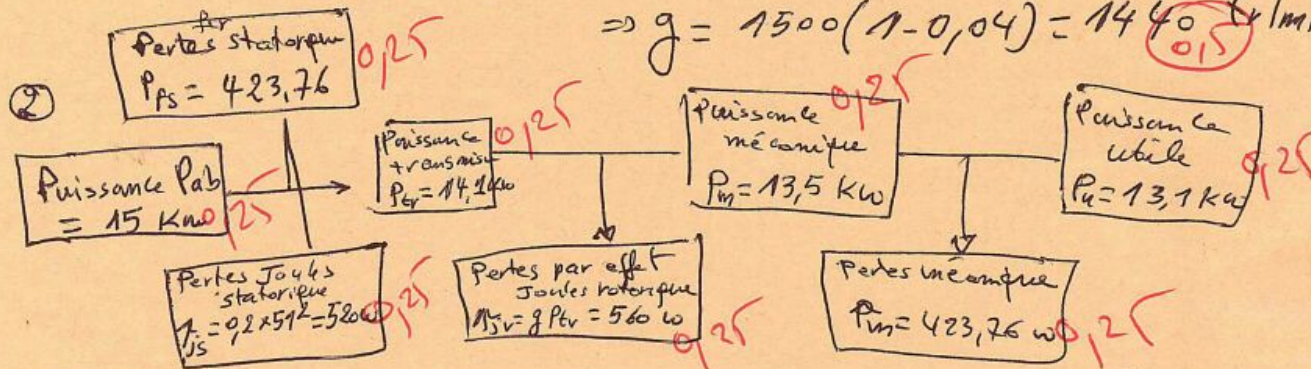 => g = 1500(1-0,04) = 1440 tr/m
0,5
②
fer
Pertes statorique
P_fs = 423,76
0,25
Puissance Pab
= 15 Kw
0,25
Pertes Joules
statorique
P_js = 0,2×51² = 520w
0,25
Puissance
transmise
P_tr = 14,1Kw
0,25
Pertes par effet
Joules rotorique
P_jr = g Ptr = 560 w
0,25
Puissance
mécanique
P_m = 13,5 Kw
0,25
Pertes mécanique
P_m = 423,76 w
0,25
Puissance
utile
P_u = 13,1 Kw
0,25